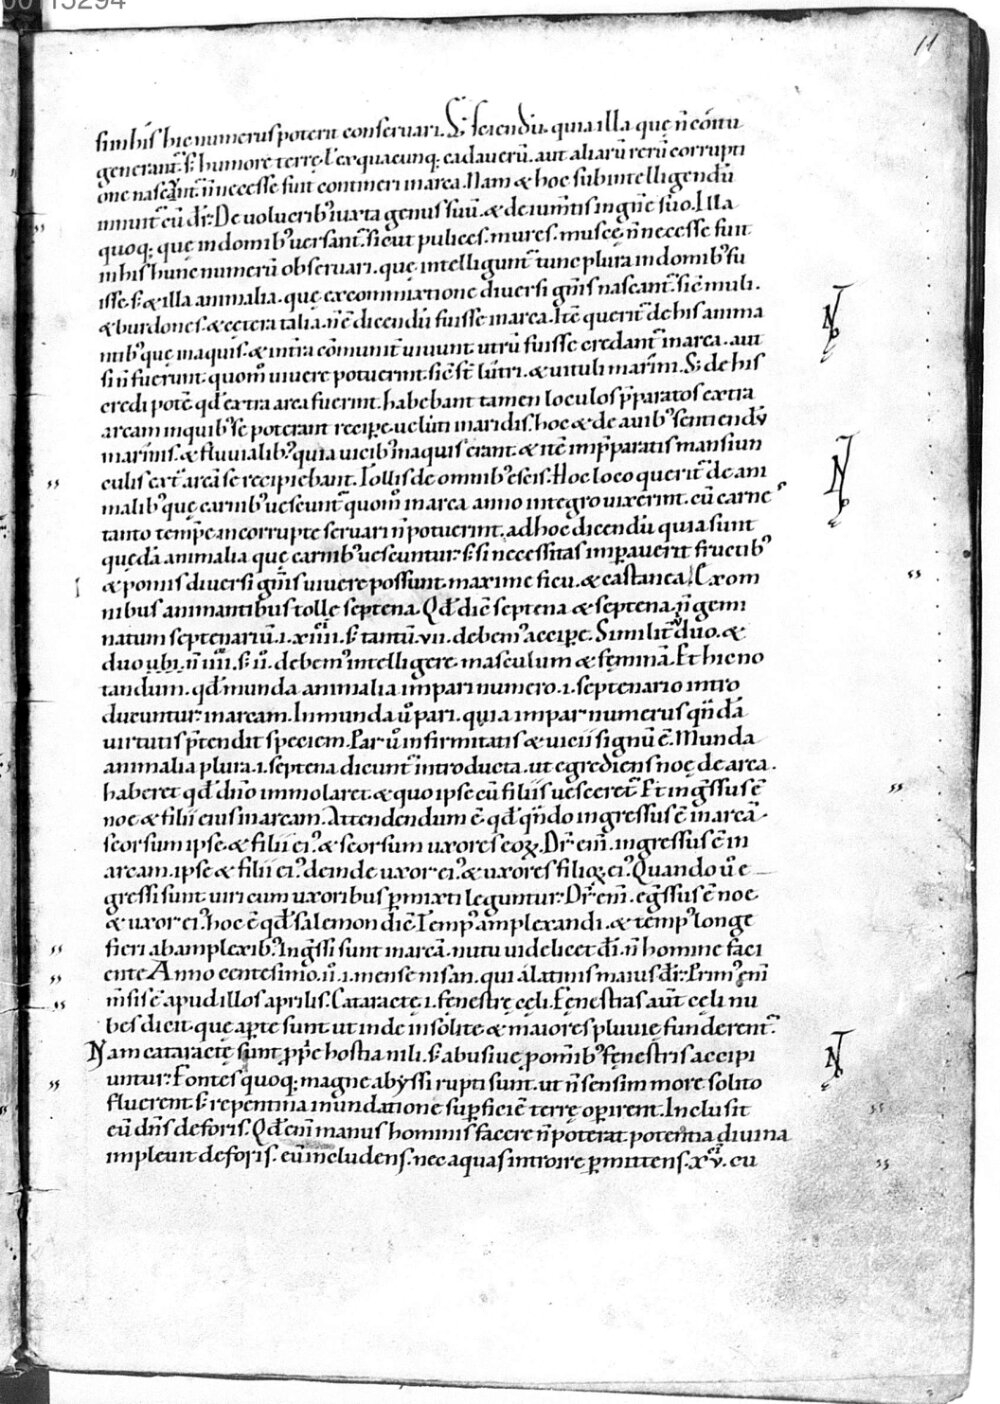 00115294
11
sim his hic numerus poterit conservari. S; sciendū. quia illa quę n̄ cōitu
generant᷑. s; humore terrę. ł ex quacunq; cadaverū. aut aliarū rerū corrupti
one nascant᷑. n̄ necesse fuit contineri in arca. Nam & hoc subintelligendū
innuit᷑ cū dr̄. De volucrib; iuxta genus suū. & de ium̄tis in gn̄e suo. Illa
quoq; quę in domib; versant᷑. sicut pulices. mures. muscę. n̄ necesse fuit
in his hunc numerū observari. quę intelligunt᷑ tunc plura in domib; fu
isse. s; & illa animalia. quę ex commixtione diversi gn̄is nascant᷑. sic̄ muli.
& burdones. & cętera talia. n̄ ē dicendū fuisse in arca. Itē querit᷑ de his anima
ntib; quę in aquis. & in t̄ra cōmunit᷑ vivunt. utrū fuisse credant᷑ in arca. aut
si n̄ fuerunt. quom̊ vivere potuerint. sic̄ st̄ lut̄ri. & vituli marini. S; de his
credi potē qđ extra arca fuerint. habebant tamen loculos p̄paratos extra
arcam in quib; se poterant recipe. veluti in aridis. hoc & de avib; sentiendū
marinis. & fluvialib;. quia vicib; in aquis erant. & itē in p̄paratis mansiun
culis ext̄ arcā se recipiebant. Tollis de omnib; escis. Hoc loco querit᷑ de ani
malib; quę carnib; vescunt᷑. quom̊ in arca anno integro vixerint. cū carnes
tanto tempe incorrupte servari n̄ potuerint. ad hoc dicendū quia sunt
quędā animalia quę carnib; vescuntur. s; si necessitas imperaverit fructib;
& pomis diversi gn̄is vivere possunt. maxime ficu. & castanea. Ex om
nibus animantibus tolle septena. Qđ dic̄ septena & septena. n̄ gemi
natum septenariū. i. xiiii. s; tantū. vii. debem; accipe. Similit᷑ duo. &
duo ubi. n̄ iiii. s; ii. debem; intelligere. masculum & feminā. Et hic no
tandum. qđ munda animalia impari numero. i. septenario intro
ducuntur in arcam. Inmunda v̊ pari. quia impar numerus qn̄dā
virtutis p̄tendit speciem. Par v̊ infirmitatis & vicii signū ē. Munda
animalia plura. i. septena dicunt᷑ introducta. ut egrediens noę de arca.
haberet qđ dn̄o immolaret. & quo ipse cū filiis vesceret᷑. Et ingressus ē
noe & filii eius in arcam. Attendendum ē qđ qn̄do ingressus ē in arcā.
seorsum ipse & filii ei;. & seorsum uxores eoꝝ. Dr̄ eni. ingressus ē in
arcam. ipse & filii ei;. deinde uxor ei;. & uxores filioꝝ ei;. Quando v̊ e
gressi sunt viri cum uxoribus pmixti leguntur. Dr̄ eni. egressus ē noe
& uxor ei;. hoc ē qđ salemon dic̄. Temp; amplexandi. & temp; longe
fieri ab amplexib;. Ingressi sunt in arcā. nutu videlicet di. n̄ homine faci
ente Anno centesimo. ii. i. mense nisan. qui a latinis maius dr̄. Prim; eni
m̄sis ē apud illos aprilis. Cataractę. i. fenestrę cęli. Fenestras aut̄ cęli nu
bes dicit. quę apte sunt. ut inde insolite & maiores pluvię funderent᷑.
Nam cataractę sunt pprie hostia nili. s; abusive p omib; fenestris accipi
untur. Fontes quoq; magne abyssi rupti sunt. ut n̄ sensim more solito
fluerent. s; repentina inundatione supficiē terrę operirent. Inclusit
eū dn̄s deforis. Qđ eni manus hominis facere n̄ poterat. potentia divina
implevit deforis. eū includens. nec aquas introire pmittens. xv. cu